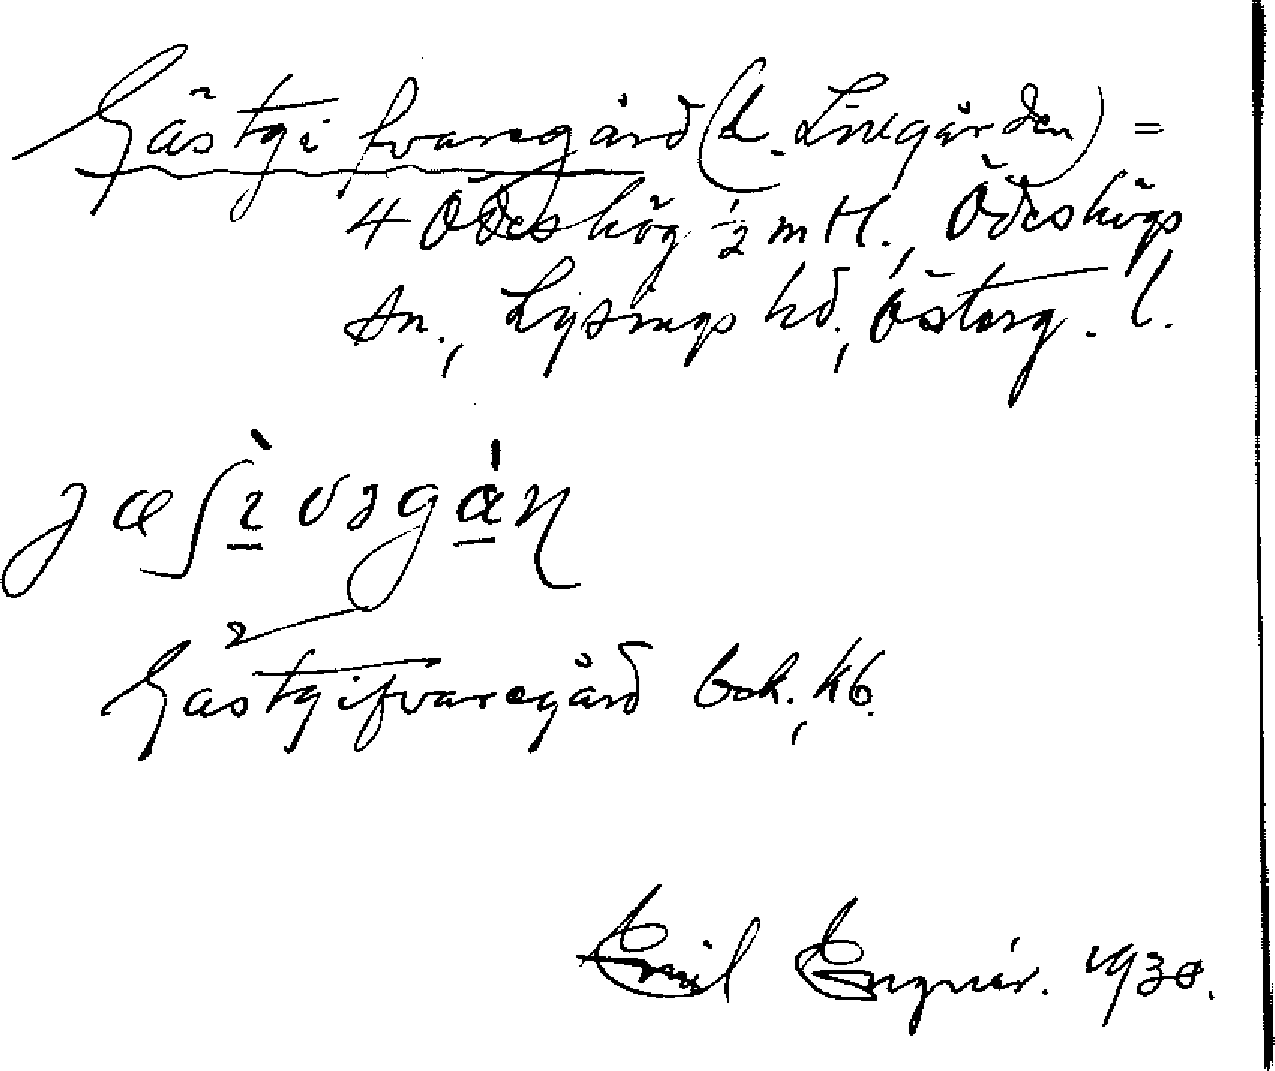 Gästgifvaregård (L. Livegården) =
4 Ödeshög ½ mtl., Ödeshögs
sn., Lysings hd., Österg. l.
Gästgifvaregård bok., kb.
Emil Engnér. 1930.